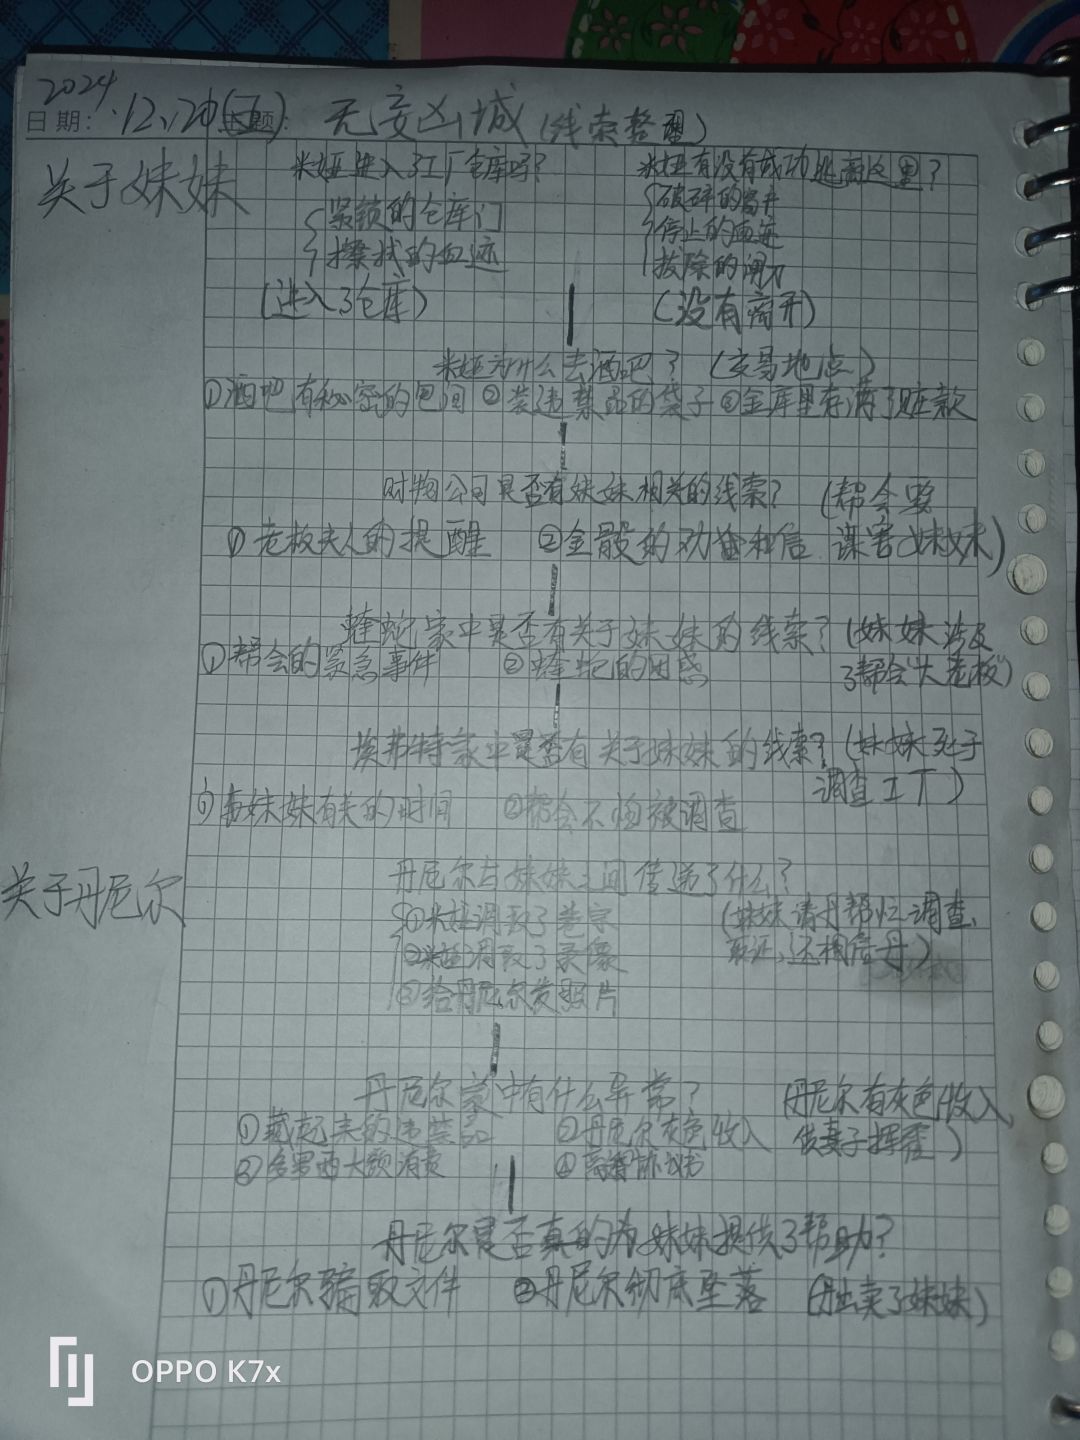 2024
日期: 12.20(五) 主题: 无妄凶城(线索整理)
关于妹妹
米娅进入了工厂仓库吗? 米娅有没有成功逃离这里?
紧锁的仓库门 破碎的窗户
擦拭的血迹 停止的血迹
拔除的闸刀
(进入了仓库) (没有离开)
米娅为什么去酒吧? (交易地点)
①酒吧有秘密的包间 ②装违禁品的袋子 ③金库里存满了赃款
财物公司是否有妹妹相关的线索? (帮会要
①老板夫人的提醒 ②金骰的劝告和信 谋害妹妹)
蝰蛇家中是否有关于妹妹的线索? (妹妹涉及
①帮会的紧急事件 ②蝰蛇的困惑 了帮会"大老板")
埃弗特家中是否有关于妹妹的线索? (妹妹死于
调查工厂)
①与妹妹有关的时间 ②帮会不怕被调查
关于丹尼尔
丹尼尔与妹妹之间传递了什么?
①米娅调取了卷宗 (妹妹请丹帮忙调查,
②米娅调取了录像 取证,还相信丹)
③给丹尼尔发照片
丹尼尔家中有什么异常? (丹尼尔有灰色收入
①藏起来的违禁品 ②丹尼尔灰色收入 供妻子挥霍)
③多里西大额消费 ④离婚协议书
丹尼尔是否真的为妹妹提供了帮助?
①丹尼尔骗取文件 ②丹尼尔彻底坠落 (丹出卖了妹妹)
OPPO K7x